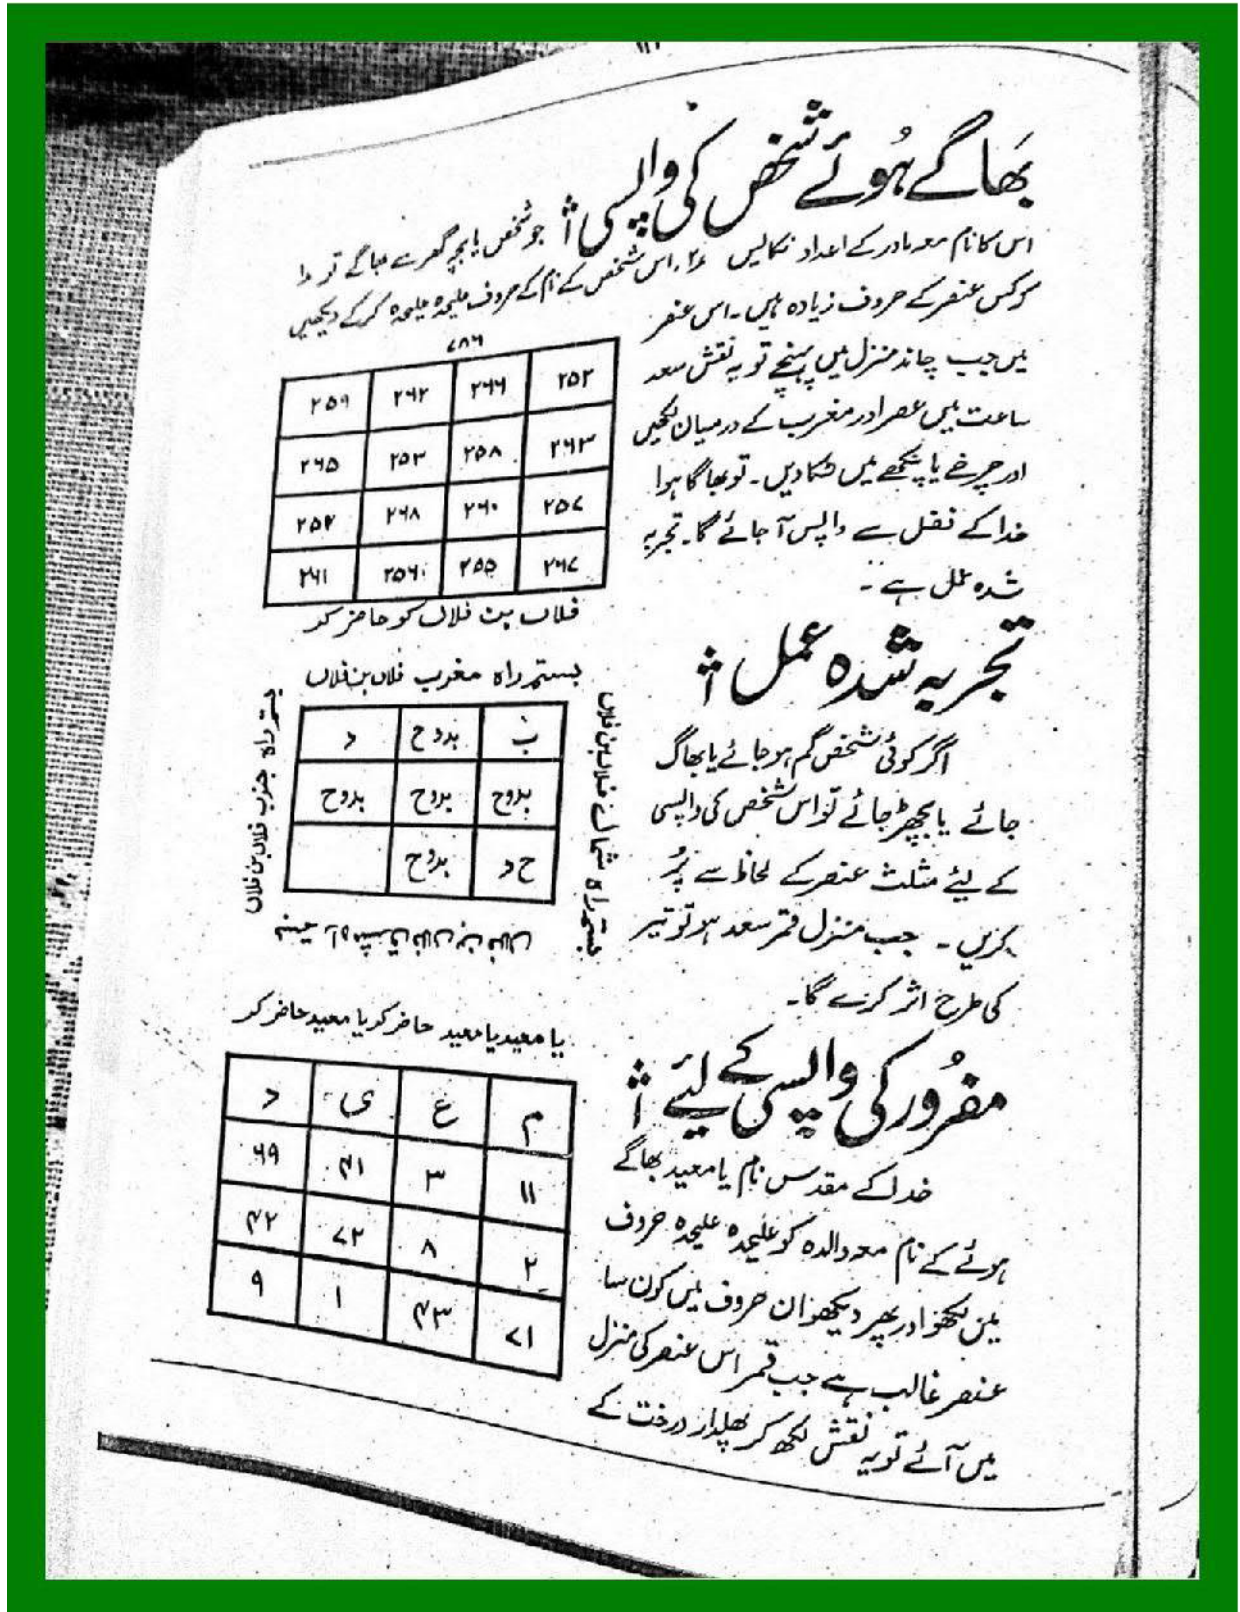 بھاگے ہوئے شخص کی واپسی
جو شخص یا بچہ گھر سے بھاگے تو
اس کا نام معہ مادر کے اعداد نکالیں
اس شخص کے نام کے حروف علیحدہ علیحدہ کرکے دیکھیں
کہ کس عنصر کے حروف زیادہ ہیں۔ اس عنصر
میں جب چاند منزل میں پہنچے تو یہ نقش سعد
ساعت میں عصر اور مغرب کے درمیان لکھیں
اور چرخے یا پنکھے میں لٹکا دیں۔ تو بھاگا ہوا
خدا کے فضل سے واپس آجائے گا۔ تجربہ
شدہ عمل ہے۔
۷۸۶
۲۵۹ ۲۶۲ ۲۶۶ ۲۵۲
۲۶۵ ۲۵۳ ۲۵۸ ۲۶۳
۲۵۴ ۲۶۸ ۲۶۰ ۲۵۷
۲۶۱ ۲۵۶ ۲۵۵ ۲۶۷
فلاں بن فلاں کو حاضر کر
تجربہ شدہ عمل
اگر کوئی شخص گم ہو جائے یا بھاگ
جائے یا بچھڑ جائے تو اس شخص کی واپسی
کے لیئے مثلث عنصر کے لحاظ سے پُر
کریں۔ جب منزل قمر سعد ہو تو تیر
کی طرح اثر کرے گا۔
بستم راہ مغرب فلاں بن فلاں
بستم راہ جنوب فلاں بن فلاں
بستم راہ شمال فلاں بن فلاں
ب بدوح د
بدوح بدوح بدوح
ح د بدوح
مفرور کی واپسی کے لیئے
خدا کے مقدس نام یا معید بھاگے
ہوئے کے نام معہ والدہ کو علیحدہ علیحدہ حروف
میں لکھو اور پھر دیکھو ان حروف میں کون سا
عنصر غالب ہے جب قمر اس عنصر کی منزل
میں آئے تو یہ نقش لکھ کر پھلدار درخت کے
یا معید یا معید حاضر کر یا معید حاضر کر
م ع ی د
۱۱ ۳ ۴۱ ۶۹
۲ ۸ ۷۲ ۴۲
۷۱ ۴۳ ۱ ۹